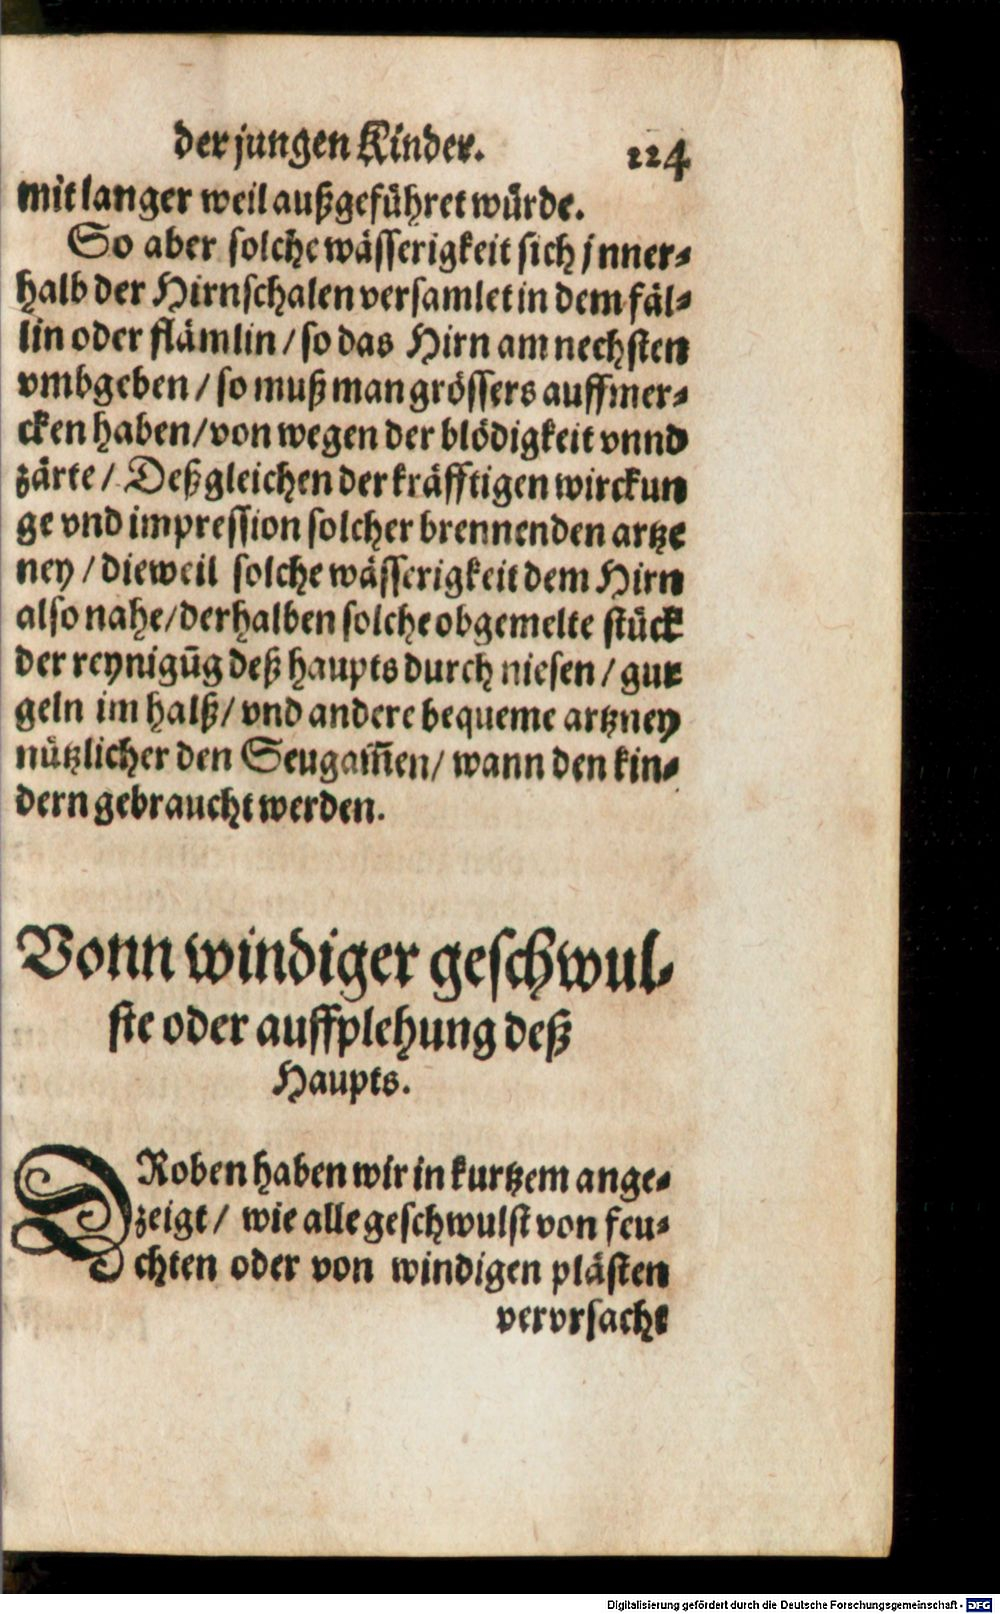 der jungen Kinder. 124
mit langer weil außgeführet würde.
So aber solche wässerigkeit sich jnner⸗
halb der Hirnschalen versamlet in dem fäl⸗
lin oder flämlin / so das Hirn am nechsten
vmbgeben / so muß man grössers auffmer⸗
cken haben / von wegen der blödigkeit vnnd
zärte / Deßgleichen der kräfftigen wirckun
ge vnd impression solcher brennenden artze
ney / dieweil solche wässerigkeit dem Hirn
also nahe / derhalben solche obgemelte stück
der reynigūg deß haupts durch niesen / gur
geln im halß / vnd andere bequeme artzney
nützlicher den Seugam̄en / wann den kin⸗
dern gebraucht werden.
Vonn windiger geschwul⸗
ste oder auffplehung deß
Haupts.
DRoben haben wir in kurtzem ange⸗
zeigt / wie alle geschwulst von feu⸗
chten oder von windigen plästen
vervrsacht
Digitalisierung gefördert durch die Deutsche Forschungsgemeinschaft - DFG